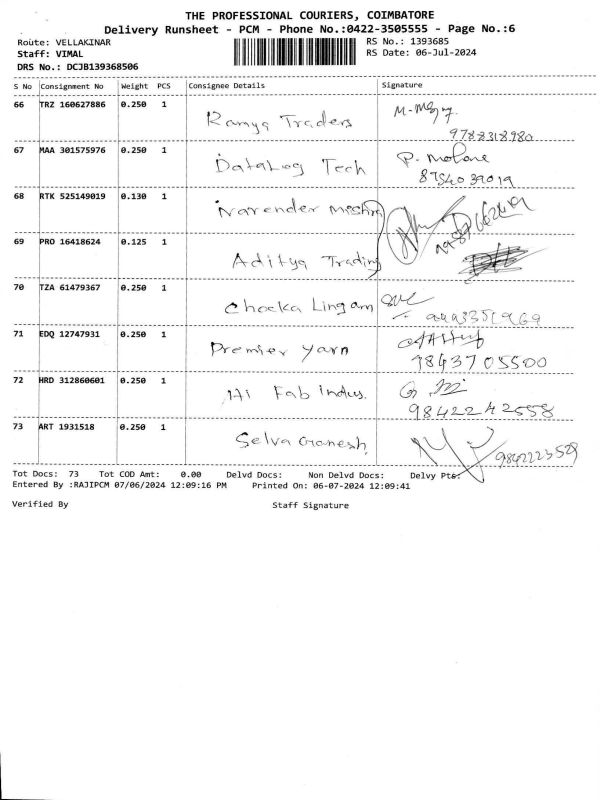 THE PROFESSIONAL COURIERS, COIMBATORE
Delivery Runsheet - PCM - Phone No.:0422-3505555 - Page No.:6
Route: VELLAKINAR
RS No.: 1393685
Staff: VIMAL
RS Date: 06-Jul-2024
DRS No.: DCJB139368506
S No Consignment No Weight PCS Consignee Details Signature
66 TRZ 160627886 0.250 1
Ramya Traders
9788318980
67 MAA 301575976 0.250 1
DataLog Tech P. Mohane
8754039019
68 RTK 525149019 0.130 1
Narender Mishra
69 PRO 16418624 0.125 1
Aditya Trading
70 TZA 61479367 0.250 1
Chocka Lingam
71 EDQ 12747931 0.250 1
Premier Yarn
9843705500
72 HRD 312860601 0.250 1
Hi Fab indus.
9842242558
73 ART 1931518 0.250 1
Selva Ganesh
9842223529
Tot Docs: 73 Tot COD Amt: 0.00 Delvd Docs: Non Delvd Docs: Delvy Pts:
Entered By :RAJIPCM 07/06/2024 12:09:16 PM Printed On: 06-07-2024 12:09:41
Verified By Staff Signature